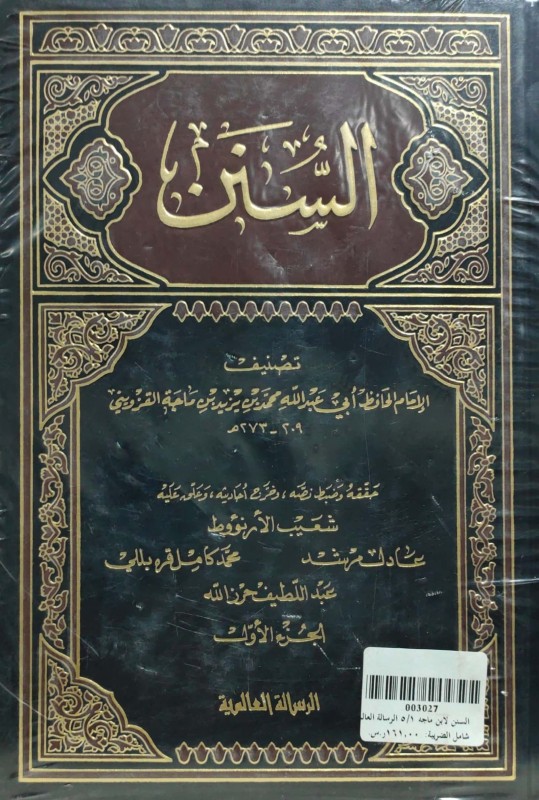 السُّنَن
تصنيف
الإمام الحافظ أبي عبد الله محمد بن يزيد بن ماجة القزويني
٢٠٩ - ٢٧٣ هـ
حققه وضبط نصه، وخرج أحاديثه، وعلق عليه
شعيب الأرنؤوط
عادل مرشد محمد كامل قره بللي
عبد اللطيف حرز الله
الجزء الأول
الرسالة العالمية
003027
السنن لابن ماجه ٥/١ الرسالة العال
شامل الضريبة: ١٦١,٠٠ ر.س.